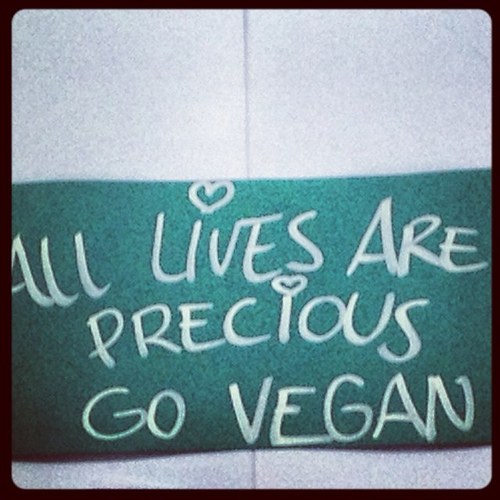 ALL LIVES ARE
PRECIOUS
GO VEGAN